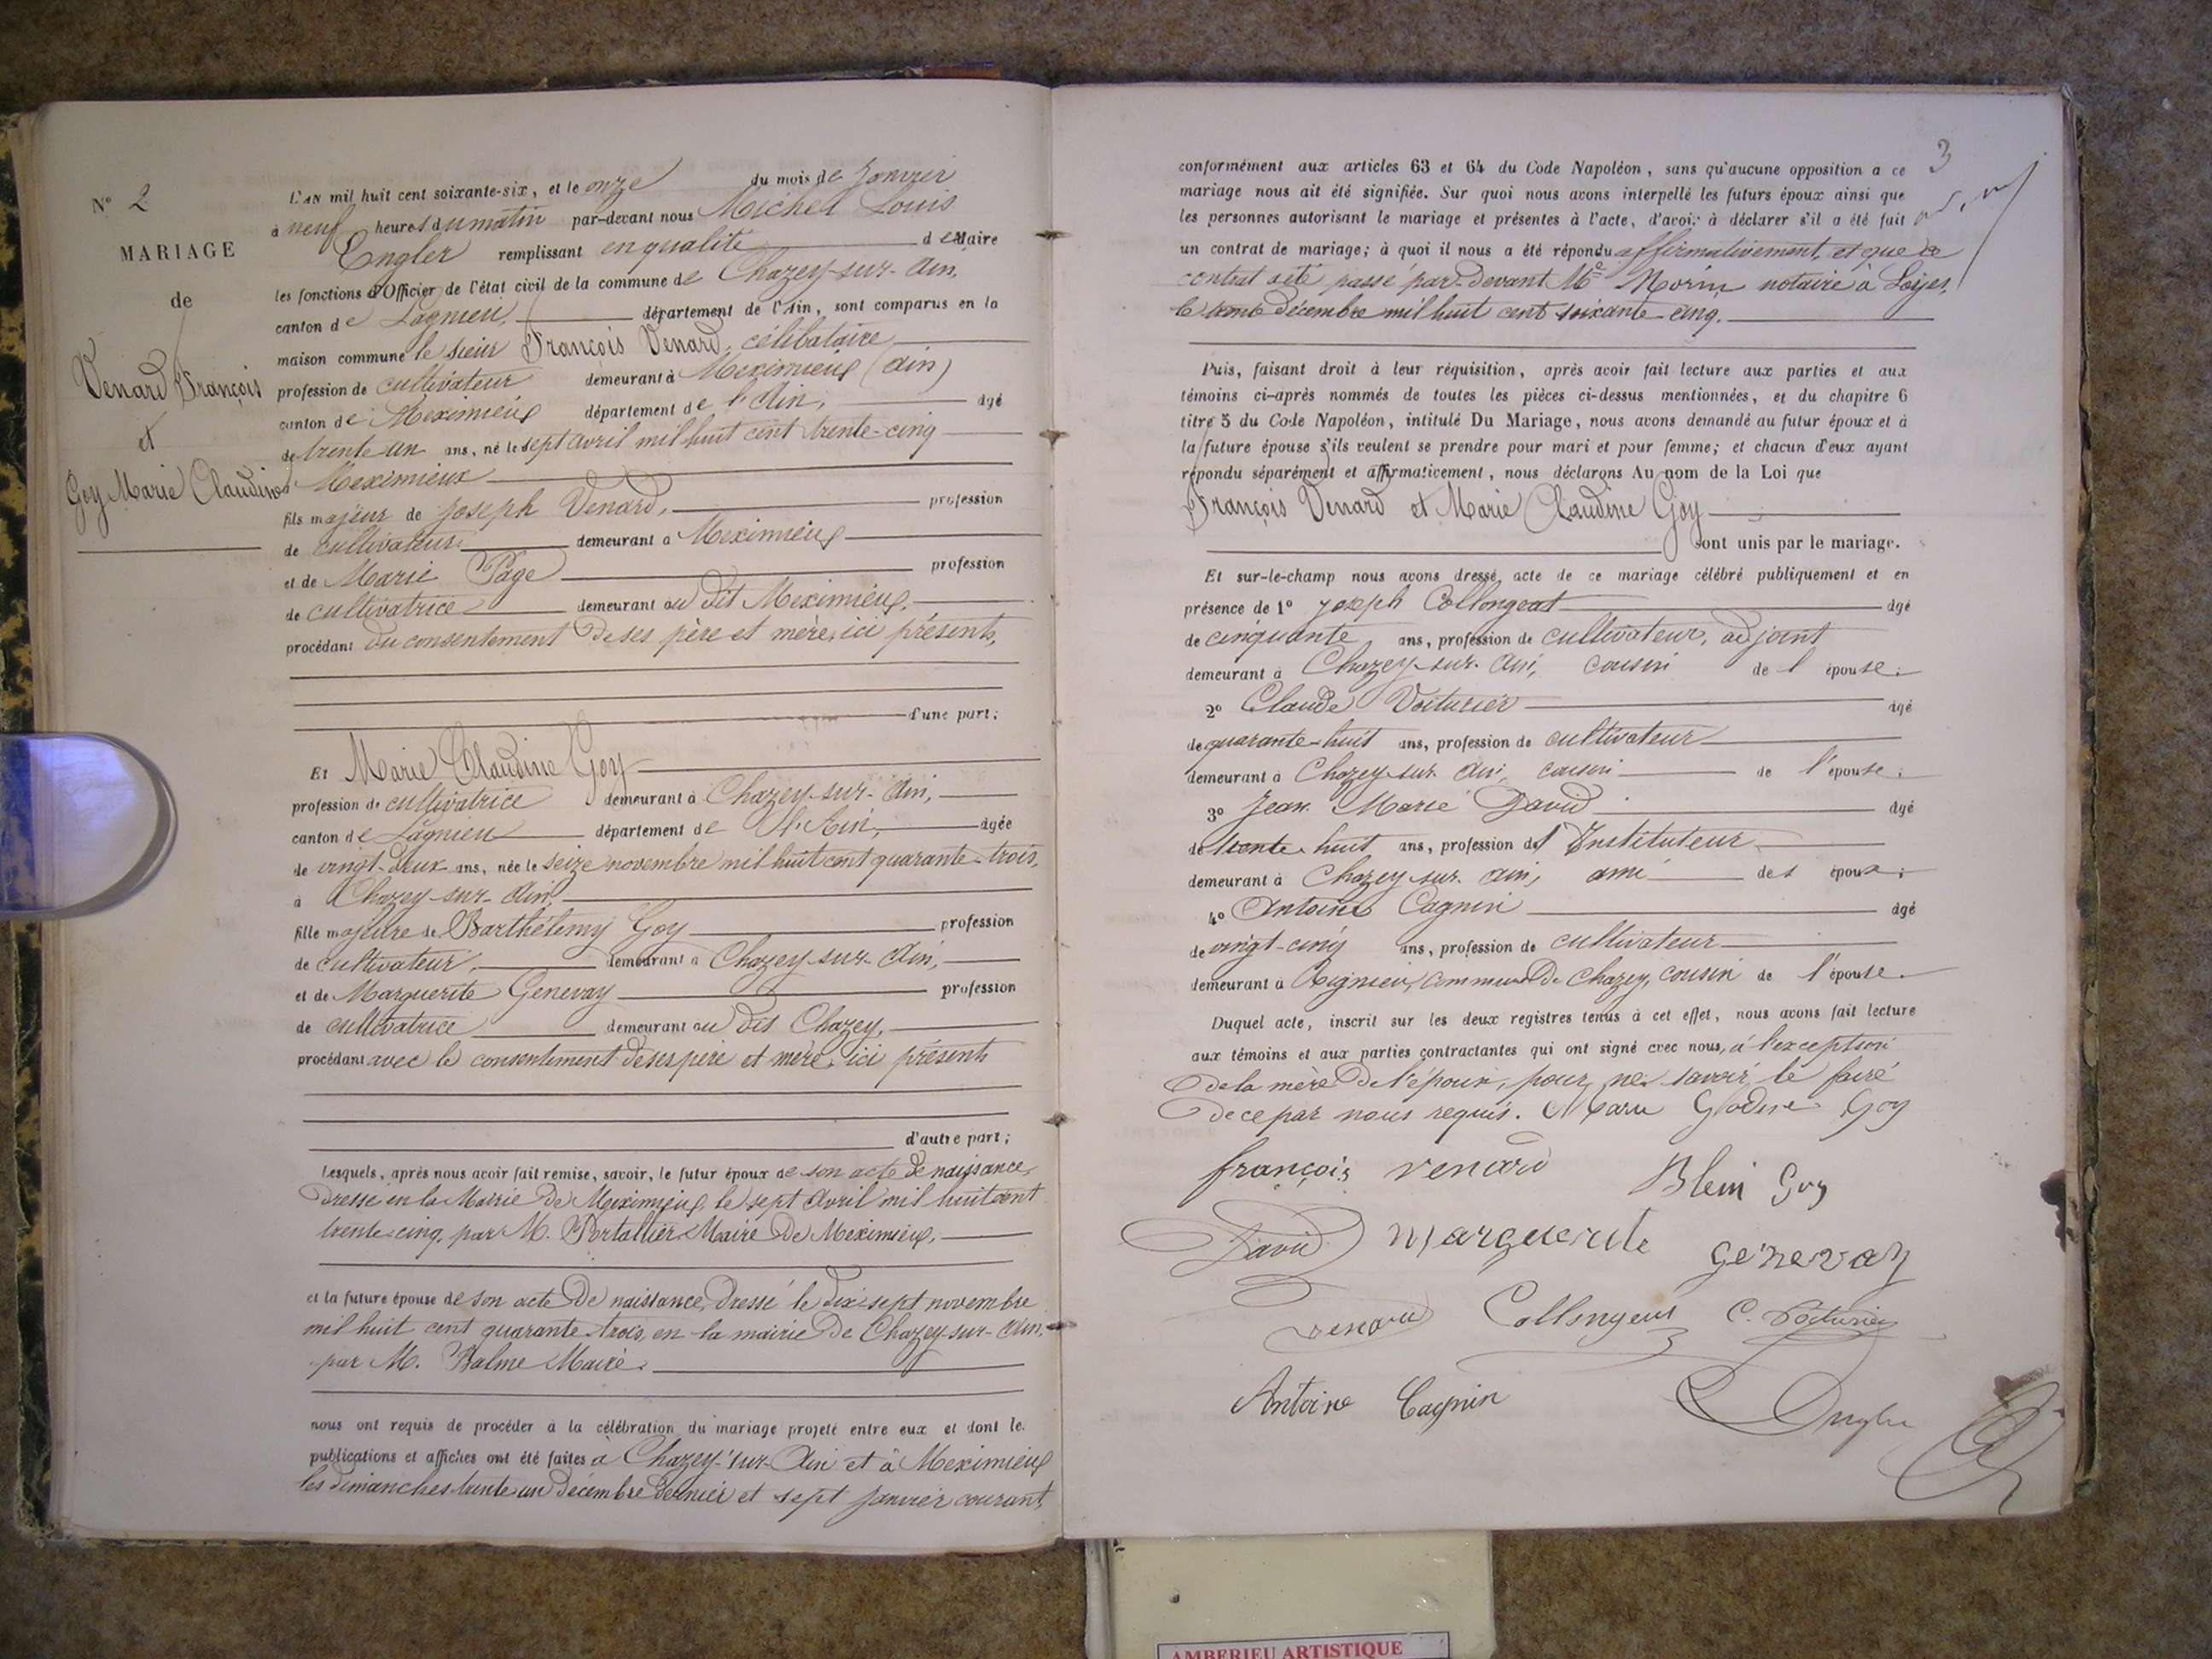 N° 2
MARIAGE
de
Venard François
et
Goy Marie Claudine
L'AN mil huit cent soixante-six, et le onze du mois de Janvier
à neuf heures du matin par-devant nous Michel Louis
Engler remplissant en qualité de Maire
les fonctions d'Officier de l'état civil de la commune de Chazey-sur-Ain,
canton de Lagnieu, département de l'Ain, sont comparus en la
maison commune le sieur François Venard, célibataire
profession de cultivateur demeurant à Meximieux (Ain)
canton de Meximieux département de l'Ain, âgé
de trente un ans, né le sept avril mil huit cent trente-cinq
à Meximieux
fils majeur de Joseph Venard, profession
de cultivateur demeurant à Meximieux
et de Marie Page profession
de cultivatrice demeurant au dit Meximieux,
procédant du consentement de ses père et mère, ici présents,
d'une part;
Et Marie Claudine Goy
profession de cultivatrice demeurant à Chazey-sur-Ain,
canton de Lagnieu département de l'Ain, âgée
de vingt-deux ans, née le seize novembre mil huit cent quarante-trois,
à Chazey-sur-Ain,
fille majeure de Barthélemy Goy profession
de cultivateur, demeurant à Chazey-sur-Ain,
et de Marguerite Genevay profession
de cultivatrice demeurant au dis Chazey,
procédant avec le consentement de ses père et mère, ici présents
d'autre part;
Lesquels, après nous avoir fait remise, savoir, le futur époux de son acte de naissance,
dressé en la Mairie de Meximieux, le sept Avril mil huit cent
trente-cinq, par M. Portallier Maire de Meximieux,
et la future épouse de son acte de naissance, dressé le dix-sept novembre
mil huit cent quarante-trois, en la mairie de Chazey-sur-Ain,
par M. Balme Maire.
nous ont requis de procéder à la célébration du mariage projeté entre eux et dont les
publications et affiches ont été faites à Chazey-sur-Ain et à Meximieux
les dimanches trente un décembre dernier et sept janvier courant,
3
conformément aux articles 63 et 64 du Code Napoléon, sans qu'aucune opposition a ce
mariage nous ait été signifiée. Sur quoi nous avons interpellé les futurs époux ainsi que
les personnes autorisant le mariage et présentes à l'acte, d'avoir à déclarer s'il a été fait
un contrat de mariage; à quoi il nous a été répondu affirmativement, et que ce
contrat a été passé par-devant Me Morin notaire à Loyes,
le décembre mil huit cent soixante-cinq.
Puis, faisant droit à leur réquisition, après avoir fait lecture aux parties et aux
témoins ci-après nommés de toutes les pièces ci-dessus mentionnées, et du chapitre 6
titre 5 du Code Napoléon, intitulé Du Mariage, nous avons demandé au futur époux et à
la future épouse s'ils veulent se prendre pour mari et pour femme; et chacun d'eux ayant
répondu séparément et affirmativement, nous déclarons Au nom de la Loi que
François Venard et Marie Claudine Goy
sont unis par le mariage.
Et sur-le-champ nous avons dressé acte de ce mariage célébré publiquement et en
présence de 1° Joseph Collongeat âgé
de cinquante ans, profession de cultivateur, adjoint
demeurant à Chazey-sur-Ain, cousin de l'épouse;
2° Claude Voiturier âgé
de quarante-huit ans, profession de cultivateur
demeurant à Chazey-sur-Ain, cousin de l'épouse;
3° Jean Marie David âgé
de trente-huit ans, profession d' Instituteur
demeurant à Chazey-sur-Ain, ami des époux;
4° Antoine Cagnin âgé
de vingt-cinq ans, profession de cultivateur
demeurant à Rignieu, commune de Chazey, cousin de l'épouse.
Duquel acte, inscrit sur les deux registres tenus à cet effet, nous avons fait lecture
aux témoins et aux parties contractantes qui ont signé avec nous, à l'exception
de la mère de l'époux, pour ne savoir le faire
de ce par nous requis. Marie Glodine Goy
françois venard Goy
David Marguerite genevay
venard Collongeat C. Voiturier
Antoine Cagnin Engler
AMBERIEU ARTISTIQUE